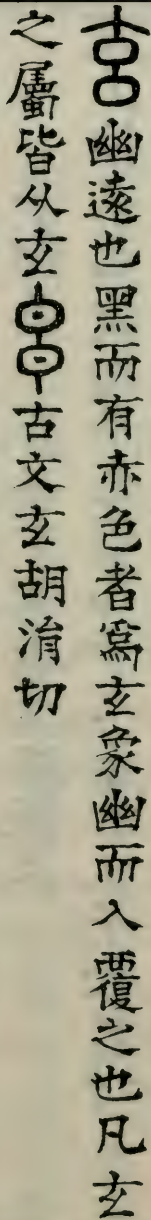 玄幽遠也黑而有赤色者爲玄象幽而入覆之也凡玄
之屬皆从玄𤣥古文玄胡涓切